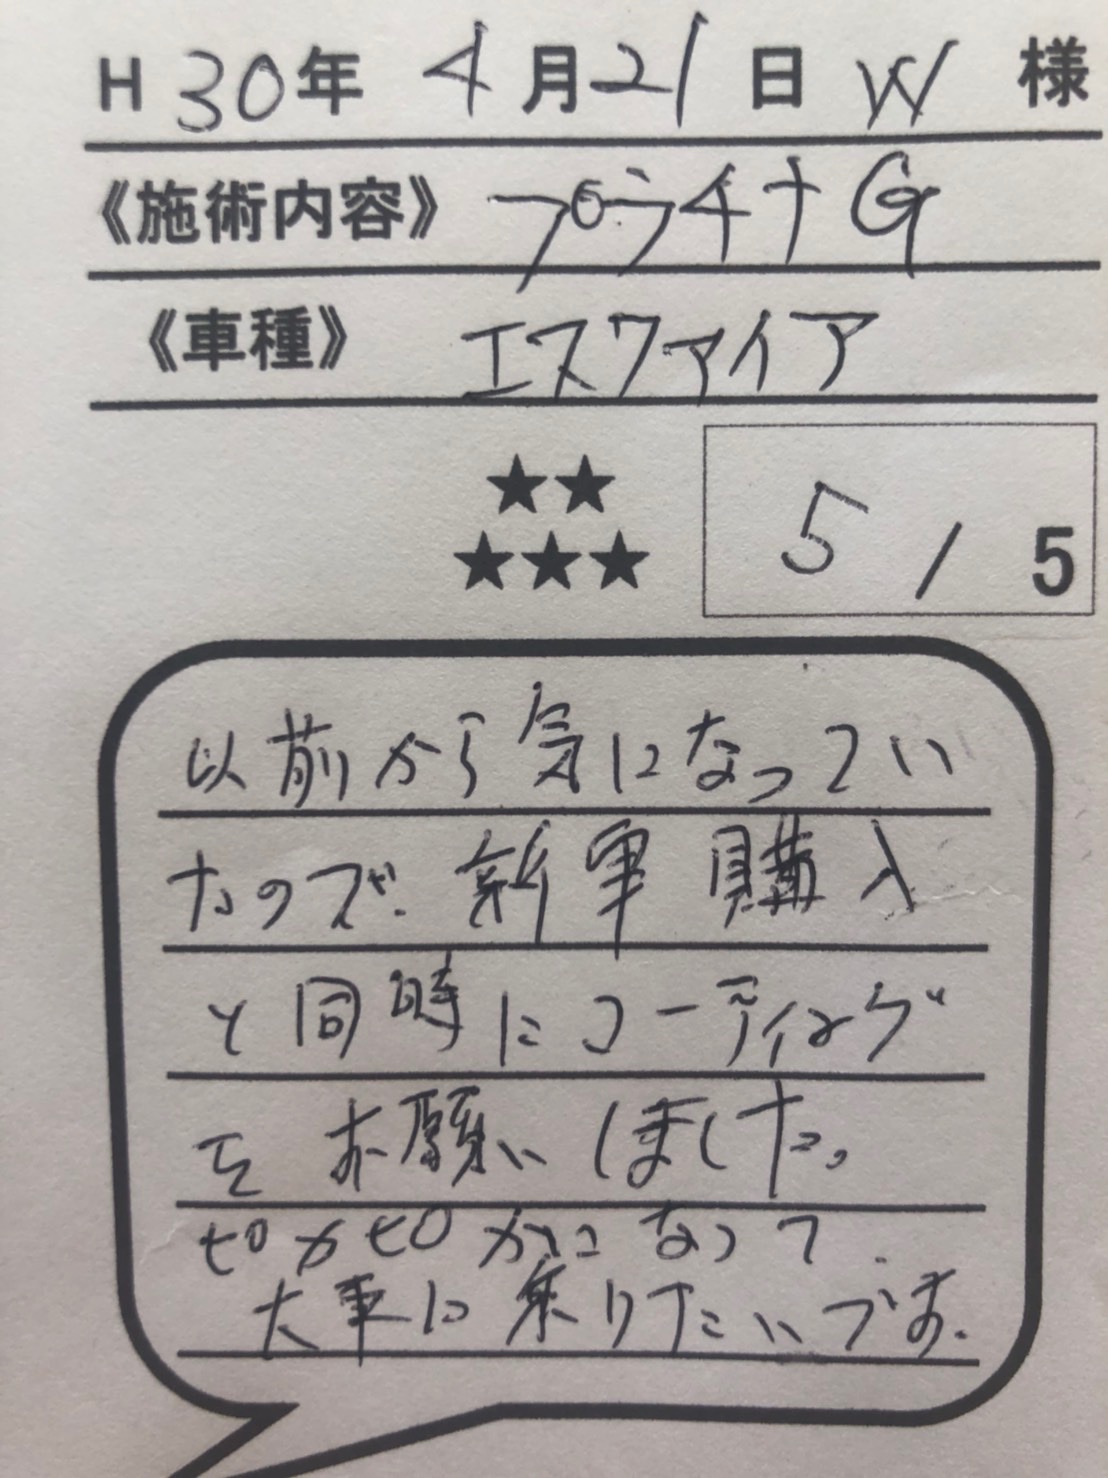 H30年 4月21日 W 様
《施術内容》 プラチナG
《車種》 エスクァイア
★★
★★★
5/5
以前から気になってい
たので、新車購入
と同時にコーティング
をお願いしました。
ピカピカになって、
大事に乗りたいです。